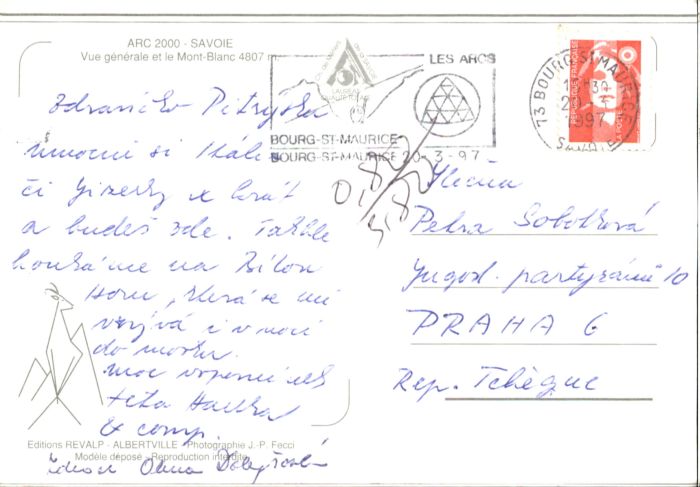 ARC 2000 - SAVOIE
Vue générale et le Mont-Blanc 4807 m.
LES ARCS
BOURG-ST-MAURICE
BOURG-ST-MAURICE 20-3-97
73 BOURG-ST-MAURICE
1997
SAVOIE
Zdravíčko Petrýsku
umocni si Itálii
či Jizerky x krát
a budeš zde. Takhle
koukáme na Bílou
Horu, která se mi
vrývá i v noci
do mozku.
moc vzpomíná
teta Hanka
& comp.
0,82
Slečna
Petra Sobotková
Jugosl. partyzánů 10
PRAHA 6
Rep. Tchèque
Editions REVALP - ALBERTVILLE - Photographie J.-P. Fecci
Modèle déposé - Reproduction interdite